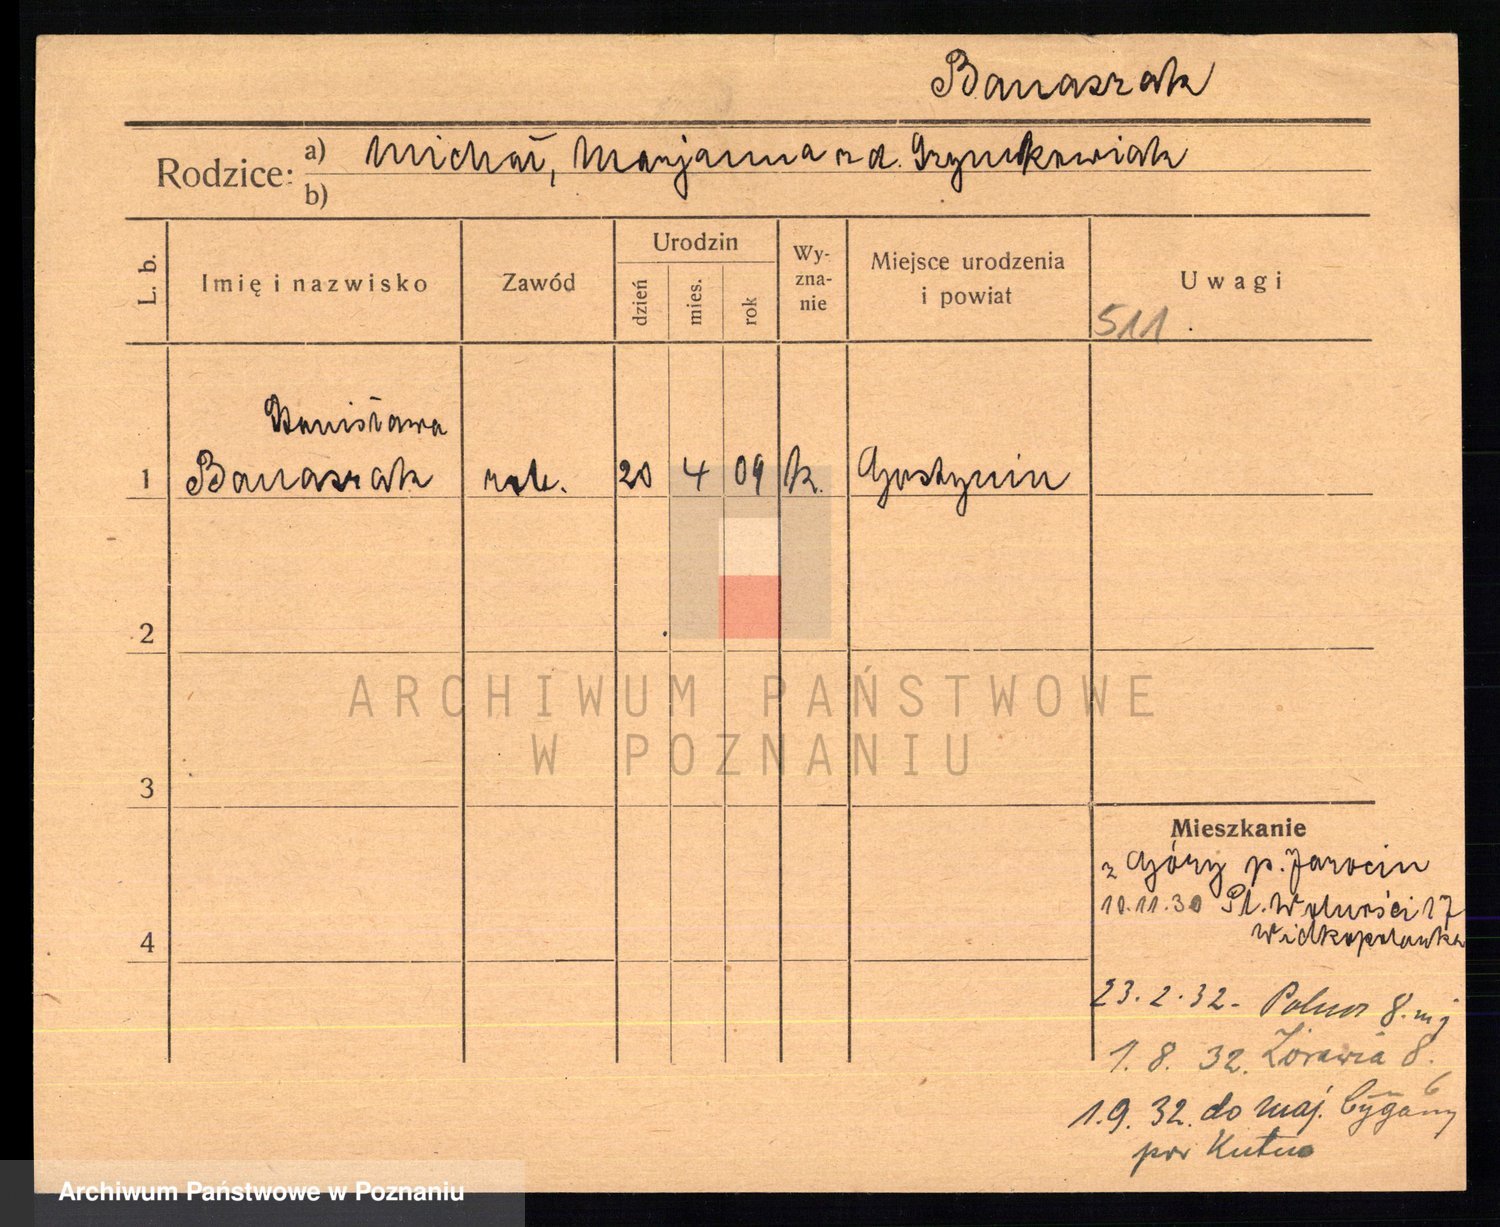 Banaszak
Rodzice:
a) Michał, Marjanna zd. Grzymkowiak
b)
L. b.
Imię i nazwisko
Zawód
Urodzin
dzień
mies.
rok
Wy-
zna-
nie
Miejsce urodzenia
i powiat
Uwagi
511
Stanisława
1 Banaszak rob. 20 4 09 k. Gostynin
2
3
4
Mieszkanie
z Góry p. Jarocin
10.11.30 Pl. Wolności 17
Wielkopolanka
23.2.32 - Polna 8.
1.8.32. Żórawia 8.
1.9.32. do maj. Cygany
pow Kutno
ARCHIWUM PAŃSTWOWE
W POZNANIU
Archiwum Państwowe w Poznaniu